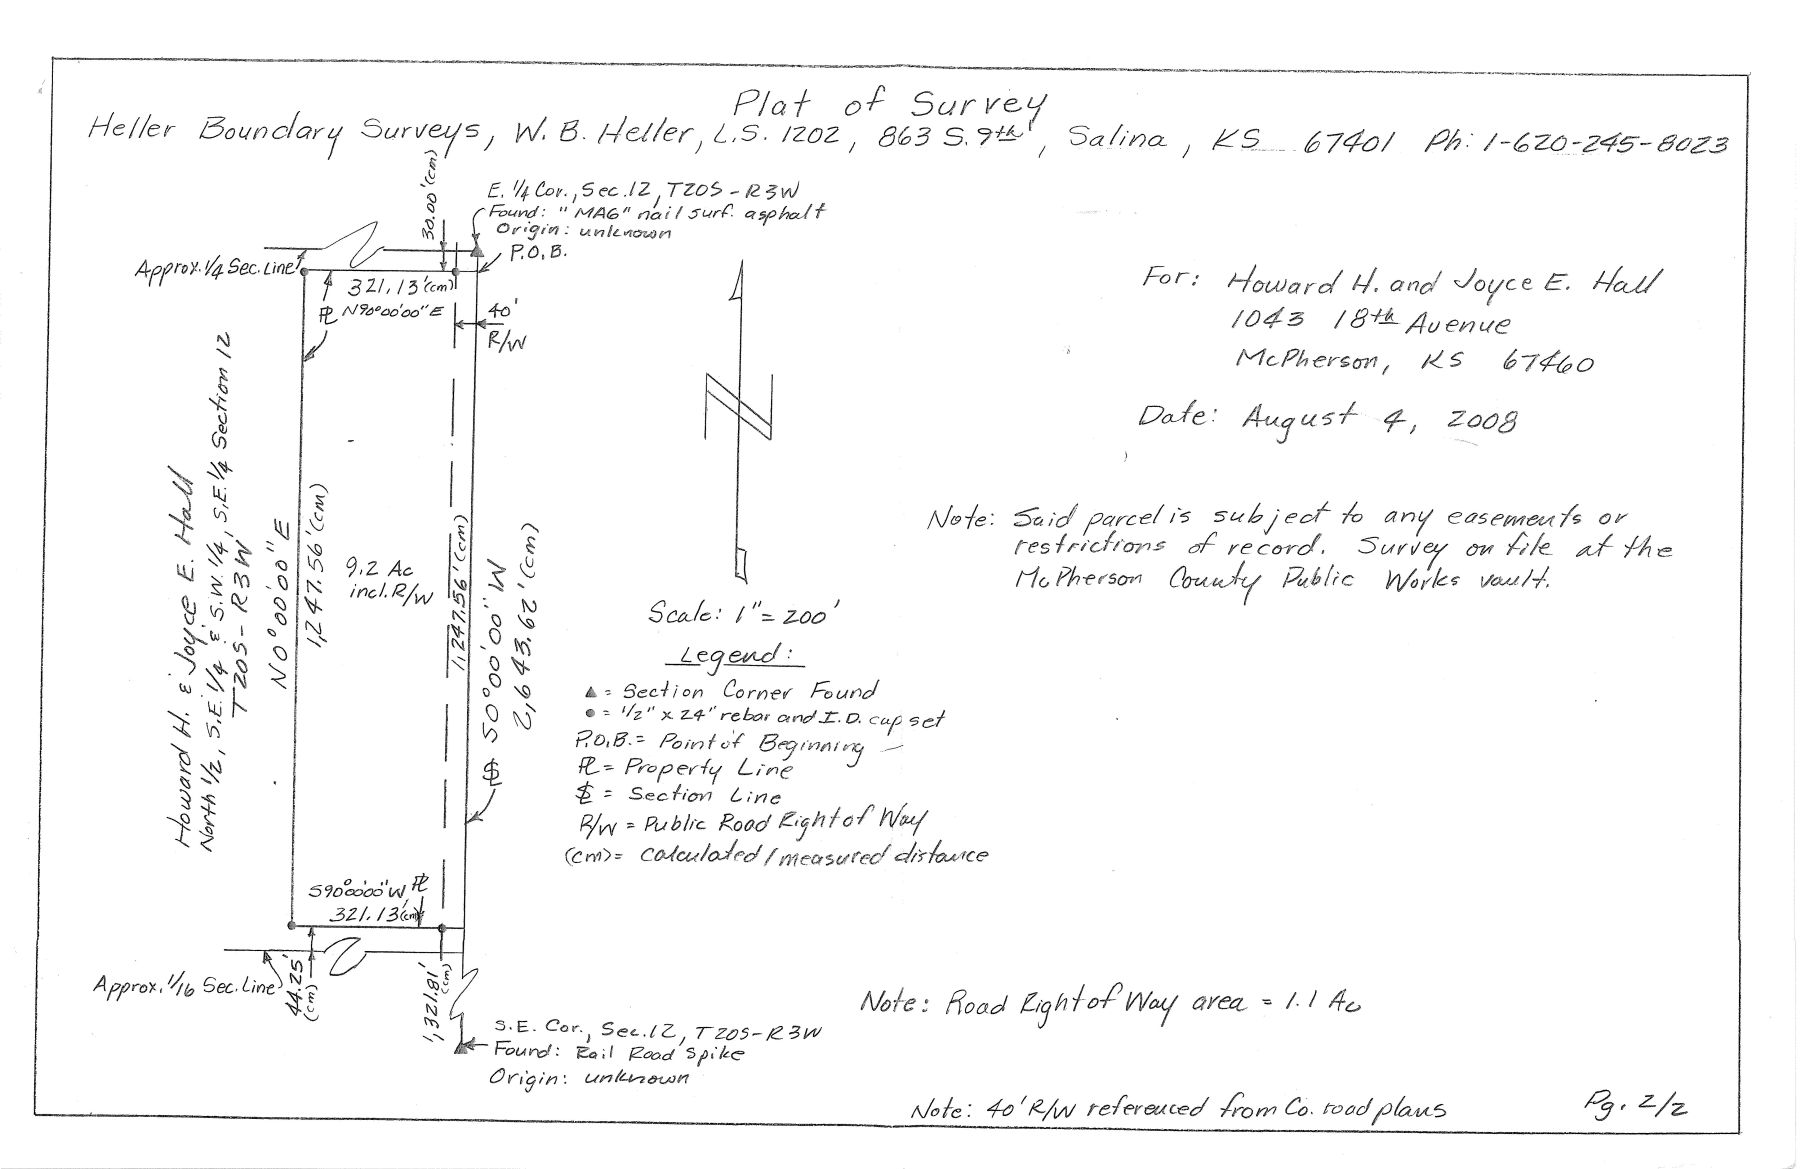 Plat of Survey
Heller Boundary Surveys, W. B. Heller, L.S. 1202, 863 S. 9th, Salina, KS 67401 Ph: 1-620-245-8023
30.00' (cm)
E. 1/4 Cor., Sec. 12, T20S - R3W
Found: "MAG" nail surf. asphalt
Origin: unknown
P.O.B.
Approx. 1/4 Sec. Line
321.13' (cm)
PL N90°00'00"E
40'
R/W
For: Howard H. and Joyce E. Hall
1043 18th Avenue
McPherson, KS 67460
Date: August 4, 2008
Note: Said parcel is subject to any easements or
restrictions of record. Survey on file at the
McPherson County Public Works vault.
Howard H. & Joyce E. Hall
North 1/2, S.E. 1/4 & S.W. 1/4, S.E. 1/4 Section 12
T20S - R3W
N0°00'00"E
1,247.56' (cm)
9.2 Ac
incl. R/W
1,247.56' (cm)
SL S0°00'00"W
2,643.62' (cm)
N
Scale: 1" = 200'
Legend:
▲ = Section Corner Found
● = 1/2" x 24" rebar and I.D. cap set
P.O.B. = Point of Beginning
PL = Property Line
SL = Section Line
R/W = Public Road Right of Way
(cm) = calculated / measured distance
S90°00'00"W PL
321.13' (cm)
Approx. 1/16 Sec. Line
44.25'
(cm)
1,321.81'
(cm)
S.E. Cor., Sec. 12, T20S - R3W
Found: Rail Road Spike
Origin: unknown
Note: Road Right of Way area = 1.1 Ac
Note: 40' R/W referenced from Co. road plans
Pg. 2/2